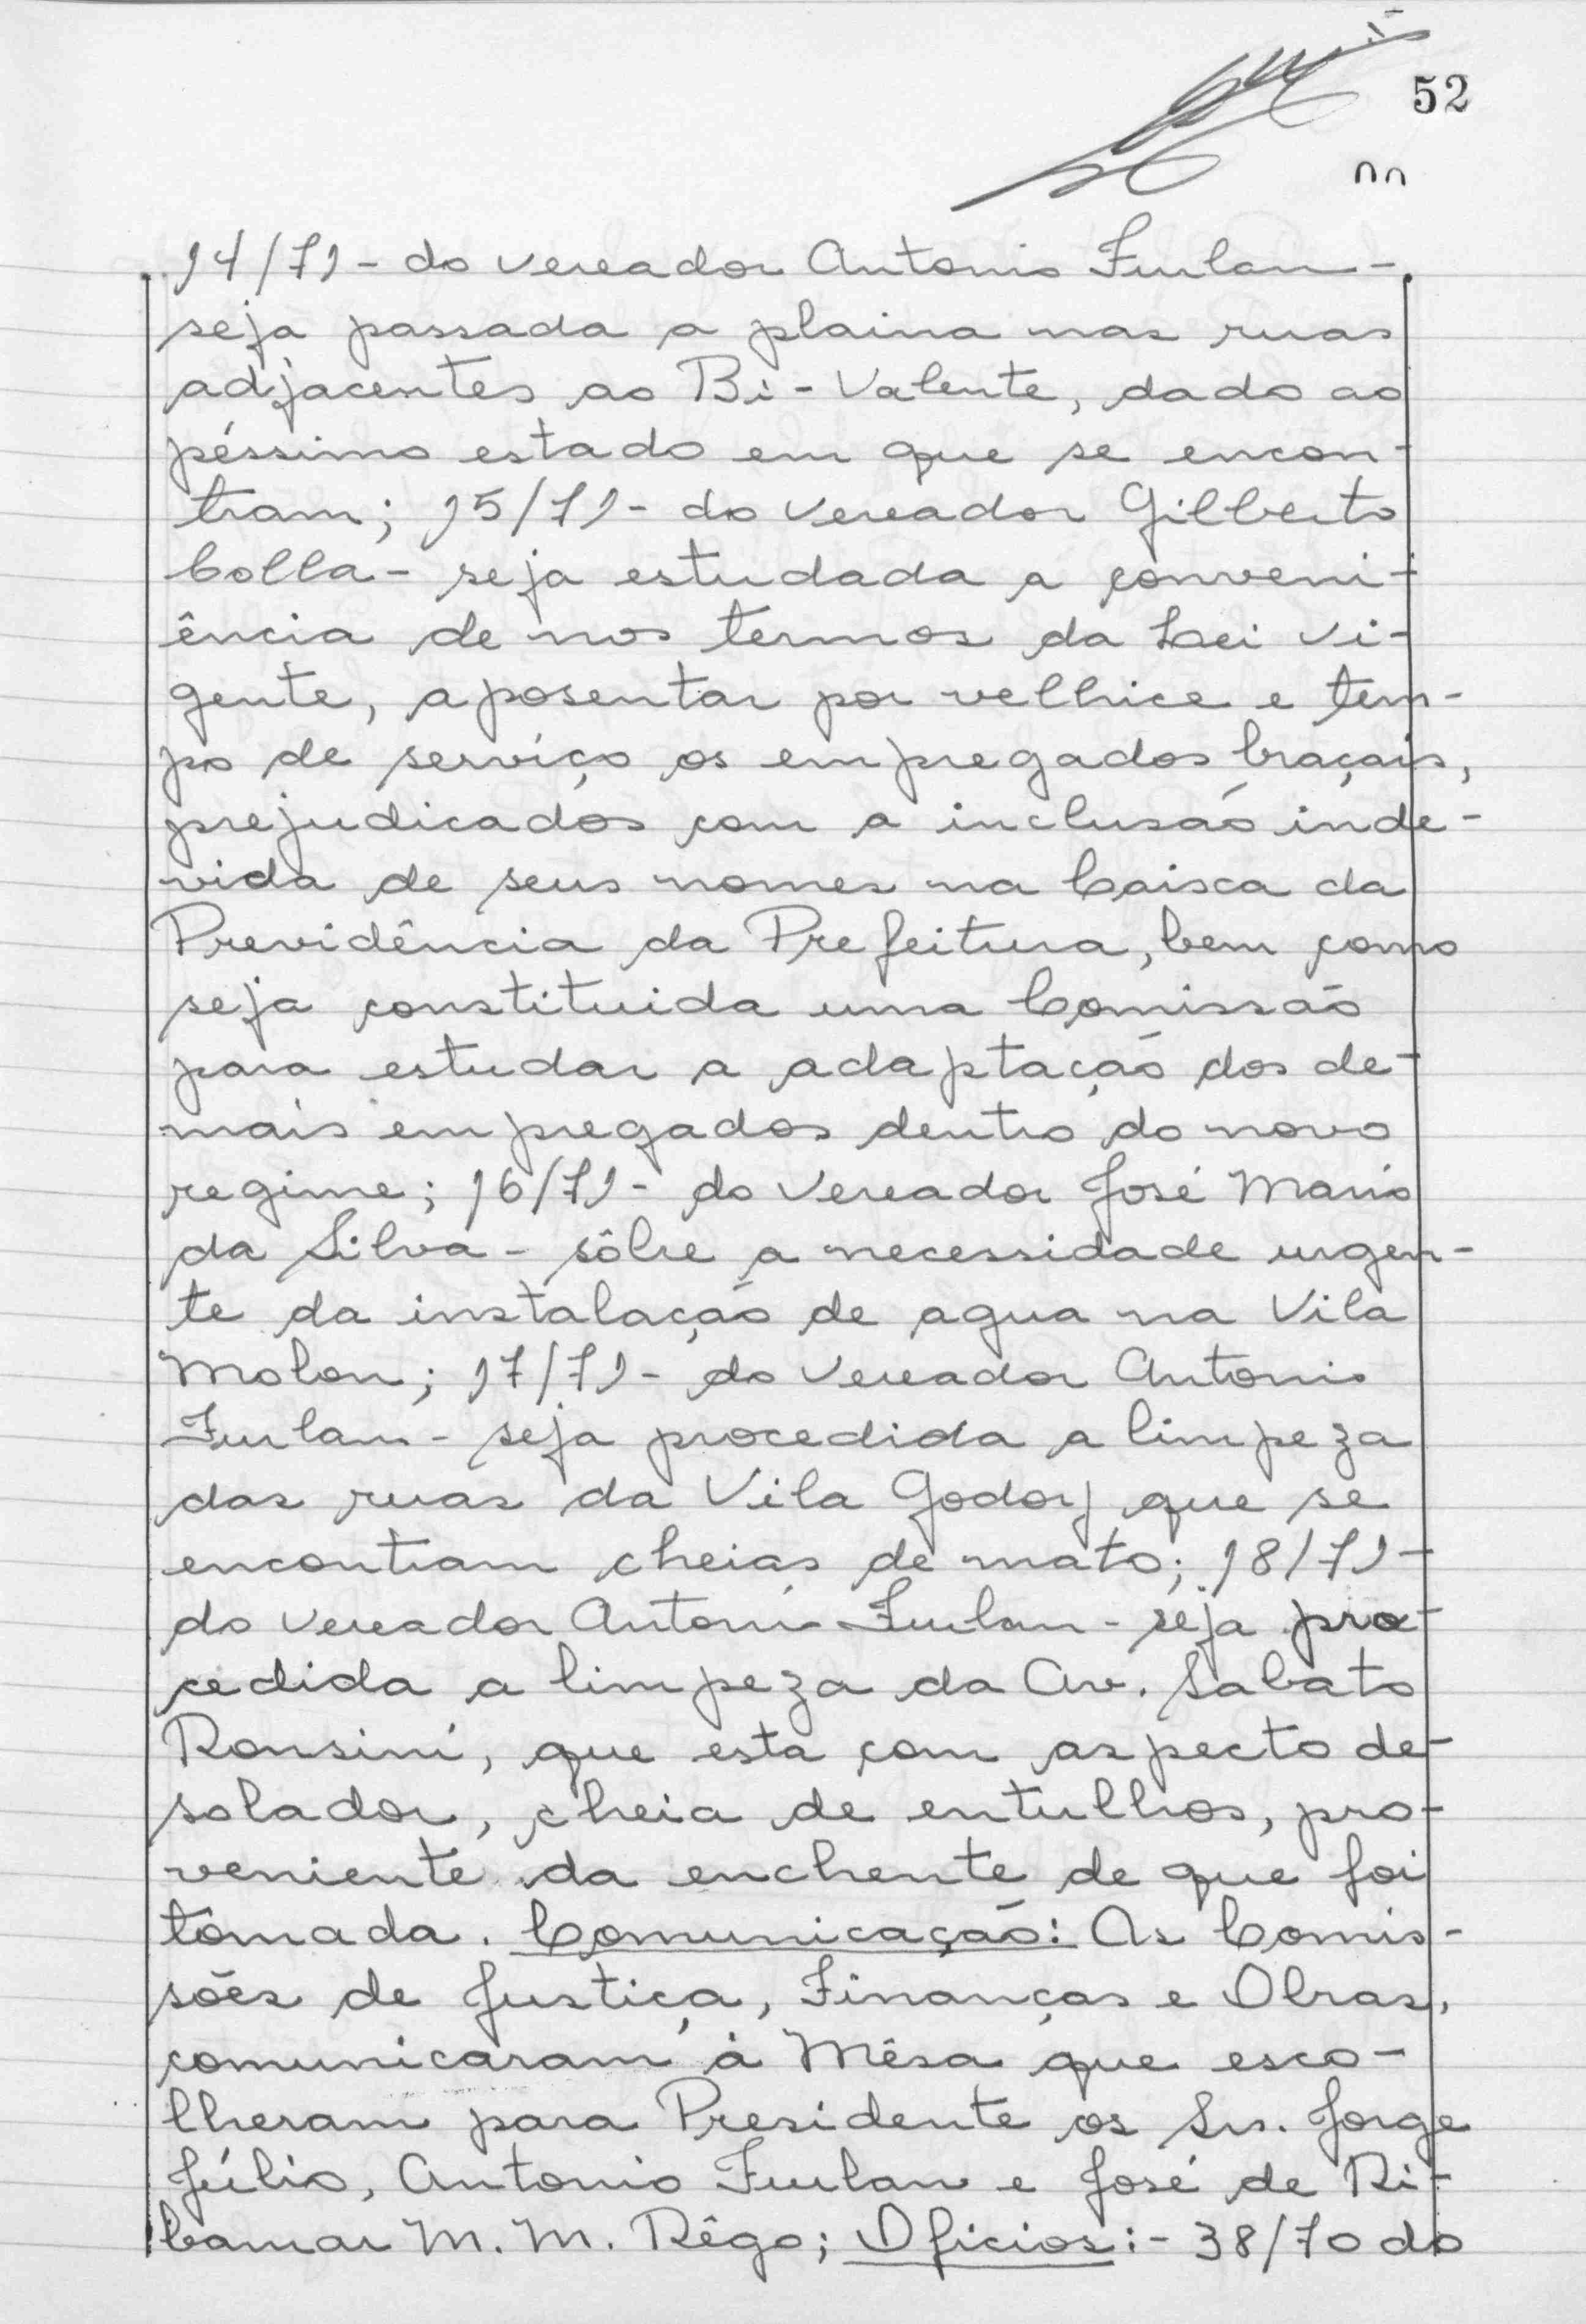 52
14/71 - do vereador Antonio Furlan -
seja passada a plaina nas ruas
adjacentes ao Bi-Valente, dado ao
péssimo estado em que se encon-
tram; 15/71 - do vereador Gilberto
Colla - seja estudada a conveni-
ência de nos termos da Lei vi-
gente, aposentar por velhice e tem-
po de serviço os empregados braçais,
prejudicados com a inclusão inde-
vida de seus nomes na Caixa da
Previdência da Prefeitura, bem como
seja constituida uma Comissão
para estudar a adaptação dos de-
mais empregados dentro do novo
regime; 16/71 - do vereador José Mario
da Silva - sôbre a necessidade urgen-
te da instalação de agua na Vila
Molon; 17/71 - do vereador Antonio
Furlan - seja procedida a limpeza
das ruas da Vila Godoy que se
encontram cheias de mato; 18/71 -
do vereador Antonio Furlan - seja pro-
cedida a limpeza da Av. Sabato
Ronsini, que esta com aspecto de-
solador, cheia de entulhos, pro-
veniente da enchente de que foi
tomada. Comunicação: As Comis-
sões de Justiça, Finanças e Obras,
comunicaram à Mêsa que esco-
lheram para Presidente os Srs. Jorge
Júlio, Antonio Furlan e José de Ri-
bamar M. M. Rêgo; Oficios: - 38/70 do